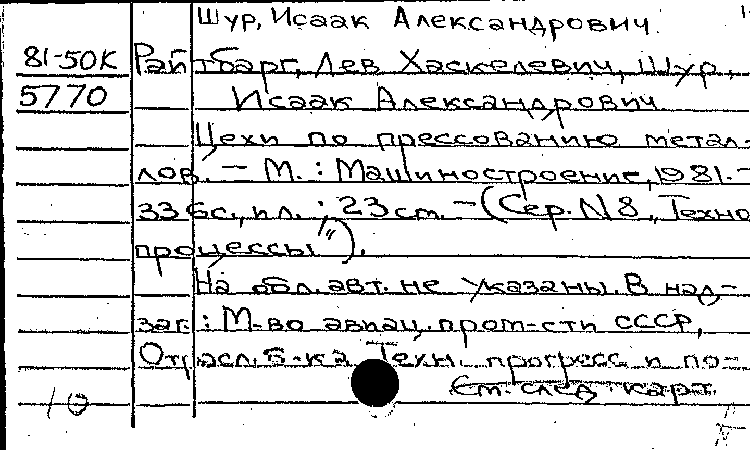 Шур, Исаак Александрович
81-50К Райтбарг, Лев Хаскелевич, Шур,
5770 Исаак Александрович
Цехи по прессованию метал-
лов. – М. : Машиностроение, 1981. –
336с., ил. ; 23 см. – (Сер. N8 „Техно
процессы").
На обл. авт. не указаны. В над-
заг. : М-во авиац. пром-сти СССР,
Отрасл. б-ка Техн. прогресс и по-
См. след. карт.
10